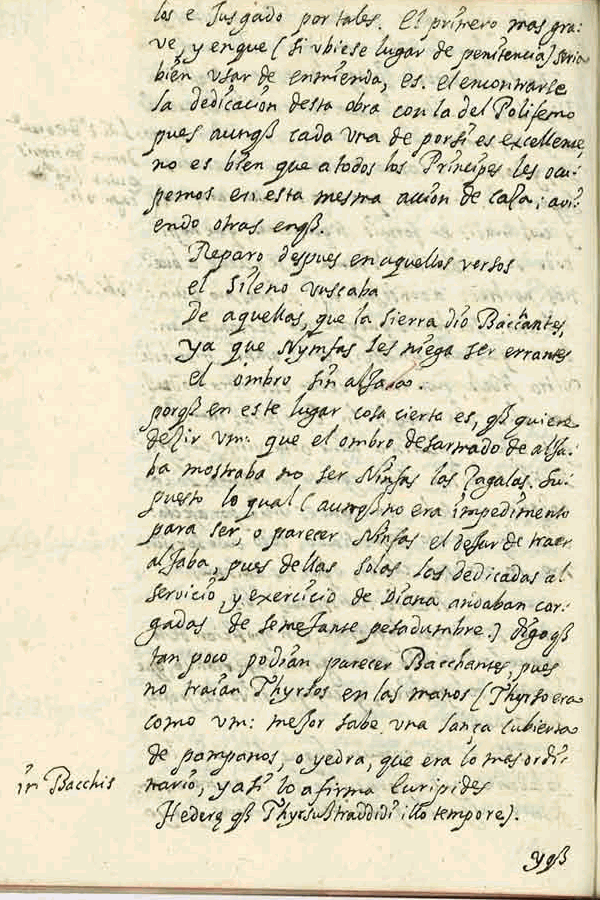 los e Jusgado por tales. El primero mas gra:
ve, y enque (si vbiese lugar de penitencia) seria
bien vsar de enmienda, es. el encontrarse
la dedicación desta obra con la del Polifemo
pues aunqß cada vna de porsi es excellente,
no es bien que a todos los Principes les ocu:
pemos en esta mesma acción de caça; avi:
endo otras enqß.
Reparo despues en aquellos versos
el Sileno vuscaba
De aquellas, que la sierra dió Bacchantes,
ya que Nymfas les niega ser errantes
el ombro sin aljava.
porqß en este lugar cosa cierta es, qß quiere
desir vm: que el ombro desarmado de alja:
ba mostraba no ser Ninfas las Zagalas. Su:
puesto lo qual (aunqß no era impedimento
para ser, o parecer Ninfas el dejar de traer
aljaba, pues dellas solas las dedicadas al
servicio, y exercicio de Diana andaban car:
gadas de semejante pesadumbre.) digo qß
tan poco podian parecer Bacchantes, pues
no traian Thyrsos en las manos (Thyrso era
como vm: mejor sabe vna lança cubierta
de pampanos, o yedra, que era lo mas ordi:
nario, y asi lo afirma Euripides
in Bacchis
Hederę qß Thyrsuß traddidi illo tempore).
yqß